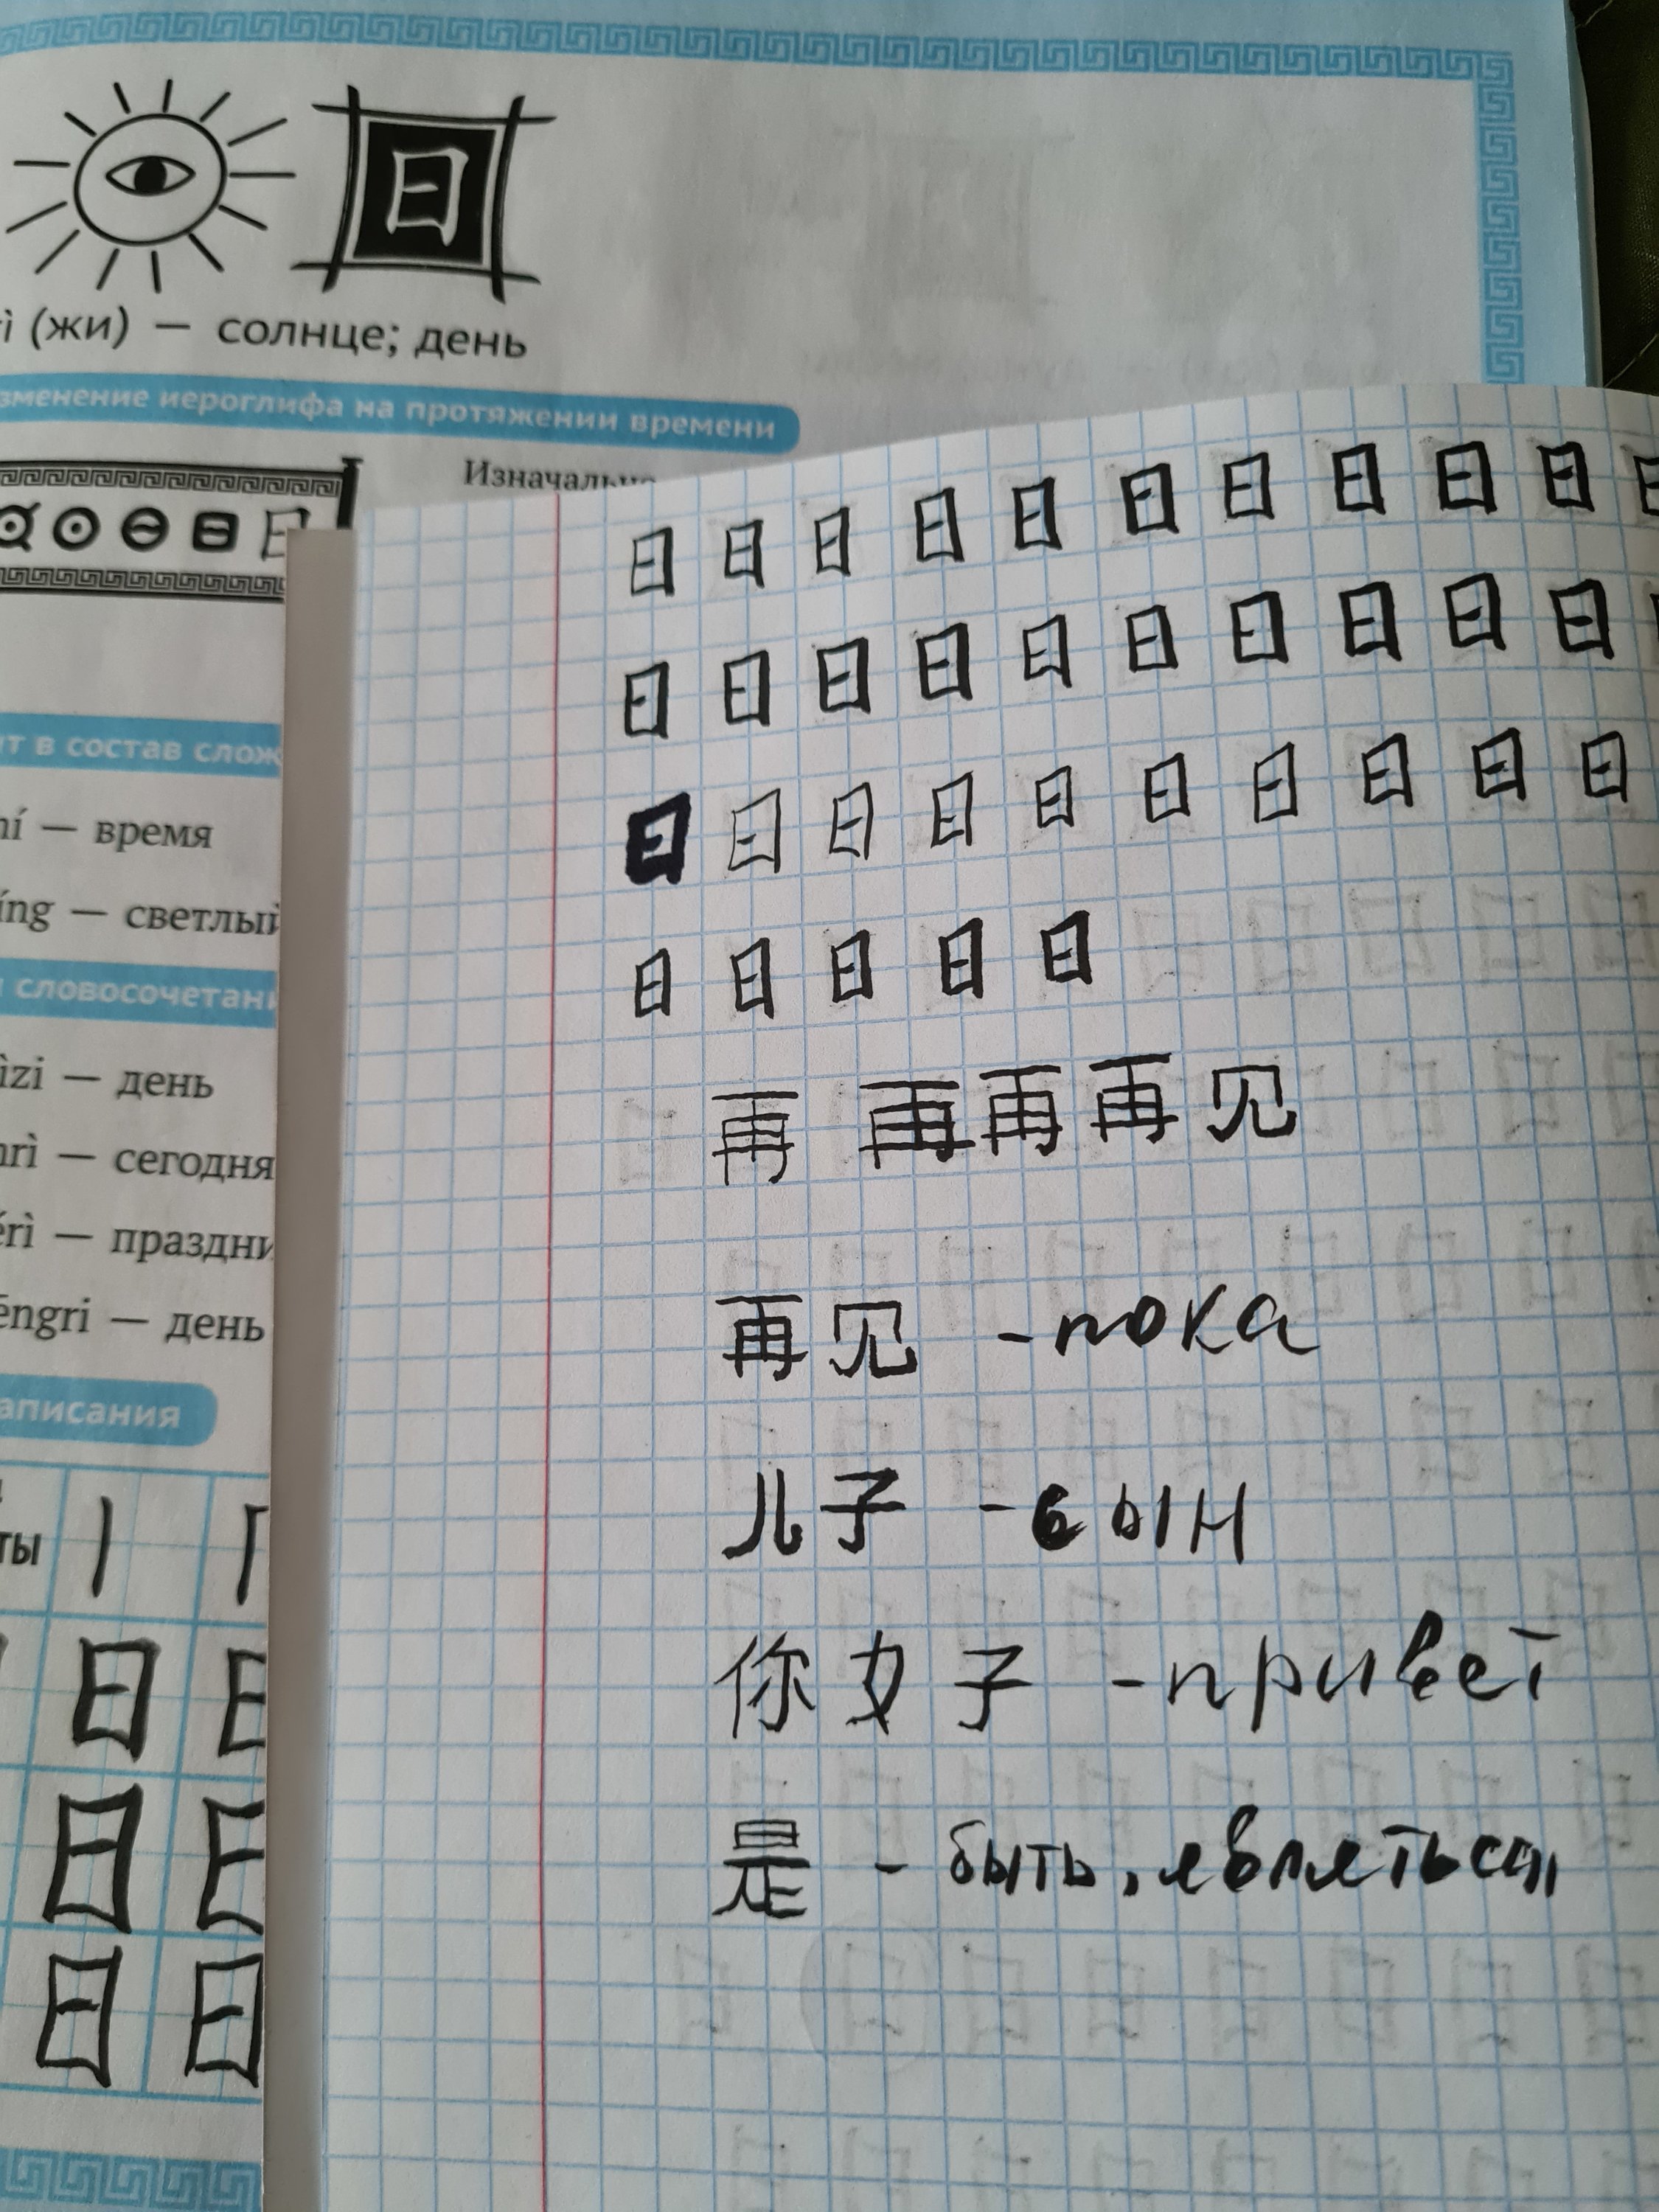 日
(жи) — солнце; день
изменение иероглифа на протяжении времени
Изначально
日
в состав
— время
— светлый
словосочетани
— день
— сегодня
— праздни
— день
日
日
日 日
日 日 日 日 日 日 日 日 日 日
日 日 日 日 日 日 日 日 日 日
日 日 日 日 日 日 日 日 日 日
日 日 日 日 日
再 再 再 再 见
再见 - пока
儿子 - сын
你女子 - привет
是 - быть, являться